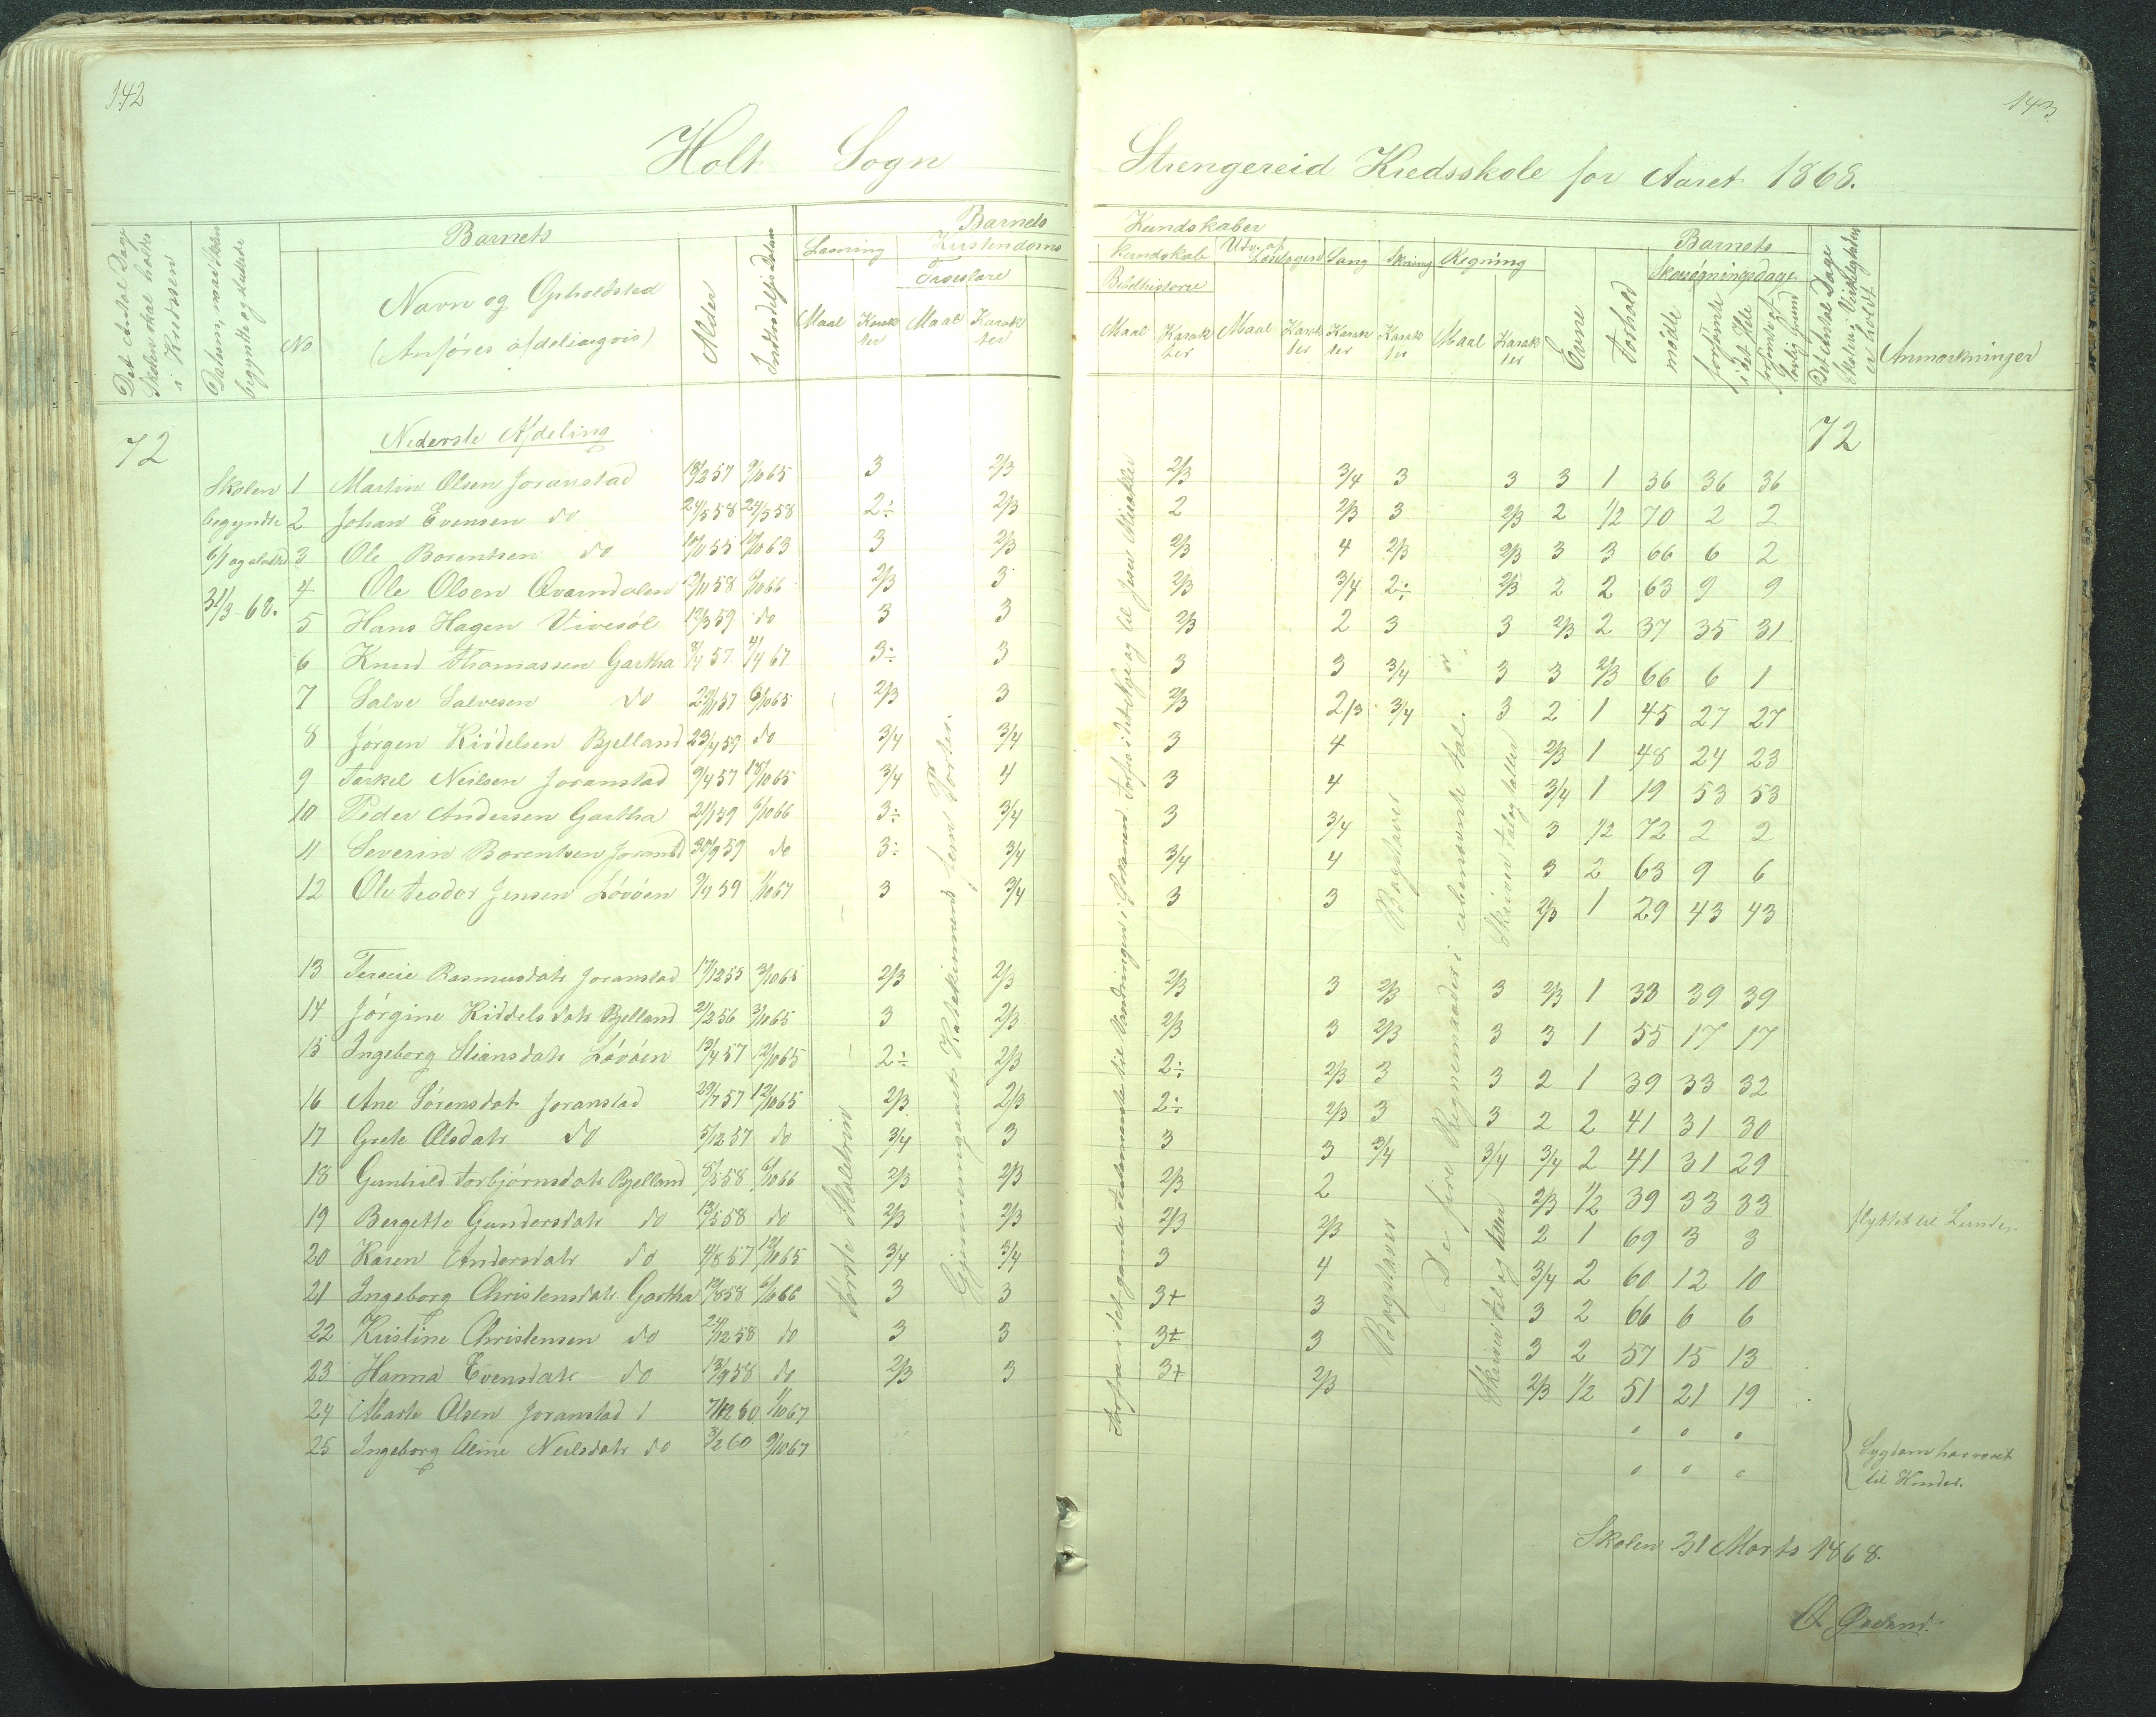 142
143
Holt Sogn
Strengereid Kredsskole for Aaret 1868.
Det Antal Dage Skolen skal holdes i Kredsen
Datum, naar Skolen begyndte og sluttede
No
Barnets
Navn og Opholdssted
(Anføres afdelingsvis)
Alder
Indtrædelsesdatum
Barnets
Læsning
Kristendoms
Troeslære
Maal Karakter Maal Karakter
Kundskaber
kundskab
Bibelhistorie
Udv. af Læsebogen
Sang
Skrivning
Regning
Maal Karakter Maal Karakter Karakter Karakter Maal Karakter
Evne
Forhold
Barnets
Skolesøgningsdage
mødte
forsømte i det Hele
forsømte af lovlig Grund
Det Antal Dage Skolen i Virkeligheden er holdt
Anmærkninger
72
72
Nederste Afdeling
Skolen
begyndte
6/1 og sluttede
31/3 68.
1 Martin Olsen Joranstad 18/2 57 9/10 65 3 2/3 2/3 3/4 3 3 3 1 36 36 36
2 Johan Evensen do 24/5 58 24/5 58 2÷ 2/3 2 2/3 3 2/3 2 1/2 70 2 2
3 Ole Borentsen do 3 2/3 2/3 4 2/3 2/3 3 3 66 6 2
4 Ole Olsen Qvarndalen 6/10 66 2/3 3 2/3 3/4 2÷ 2/3 2 2 63 9 9
5 Hans Hagen Vivesøl 12/3 59 do 3 3 2/3 2 3 3 2/3 2 37 35 31
6 Knud Thomassen Gartha 4/4 67 3÷ 3 3 3 3/4 3 3 2/3 66 6 1
7 Salve Salvesen do 6/10 65 2/3 3 2/3 2/3 3/4 3 2 1 45 27 27
8 Jørgen Kiddelsen Bjelland 23/4 59 do 3/4 3/4 3 4 2/3 1 48 24 23
9 Terkel Neilsen Joranstad 9/4 57 18/10 65 3/4 4 3 4 3/4 1 19 53 53
10 Peder Andersen Gartha 21/1 59 6/10 66 3÷ 3/4 3 3/4 3 1/2 72 2 2
11 Severin Borentsen Joranstd 30/9 59 do 3÷ 3/4 3/4 4 3 2 63 9 6
12 Ole Teodor Jensen Løvøen 1/10 67 3 3/4 3 3 2/3 1 29 43 43
13 Terecie Rasmusdatr Joranstad 17/12 55 3/10 65 2/3 2/3 2/3 3 2/3 3 2/3 1 33 39 39
14 Jørgine Kiddelsdatr Bjelland 24/2 56 3/10 65 3 2/3 2/3 3 2/3 3 3 1 55 17 17
15 Ingeborg Stiansdatr Løvøen 13/4 57 12/10 65 2÷ 2/3 2÷ 2/3 3 3 2 1 39 33 32
16 Ane Sørensdatr Joranstad 29/7 57 12/10 65 2/3 2/3 2÷ 2/3 3 3 2 2 41 31 30
17 Grete Olsdatr do 5/12 57 do 3/4 3 3 3 3/4 3/4 3/4 2 41 31 29
18 Gunhild Torbjørnsdatr Bjelland 8/5 58 6/10 66 2/3 2/3 2/3 2 2/3 1/2 39 33 33
19 Bergette Gundersdatr do 13/5 58 do 2/3 2/3 2/3 2/3 2 1 69 3 3 flyttet til Lunder
20 Karen Andersdatr do 4/8 57 12/10 65 3/4 3/4 3 4 3/4 2 60 12 10
21 Ingeborg Christensdatr Gartha 6/10 66 3 3 3+ 3 3 2 66 6 6
22 Kristine Christensen do 24/12 58 do 3 3 3+ 3 3 2 57 15 13
23 Hanna Evensdatr do 13/9 58 do 2/3 3 3+ 2/3 2/3 1/2 51 21 19
24 Marte Olsen Joranstad 1/10 67 0 0 0
25 Ingeborg Aline Neilsdatr do 3/2 60 9/10 67 0 0 0
Sygdom har været
til Hinder.
Første Skoletrin
Gjennemgaaet Katekismens fem Parter.
Forfra i det gamle Testamente til Vandringen i Ørkenen. Forfra i det Nye og til Jesu Mirakler
Bogstaver
Bogstaver
De fire Regnemaader i ubenævnte Tal.
Skriver Tal og tæller
Skriver Tal og tæller
Skolen 31 Marts 1868.